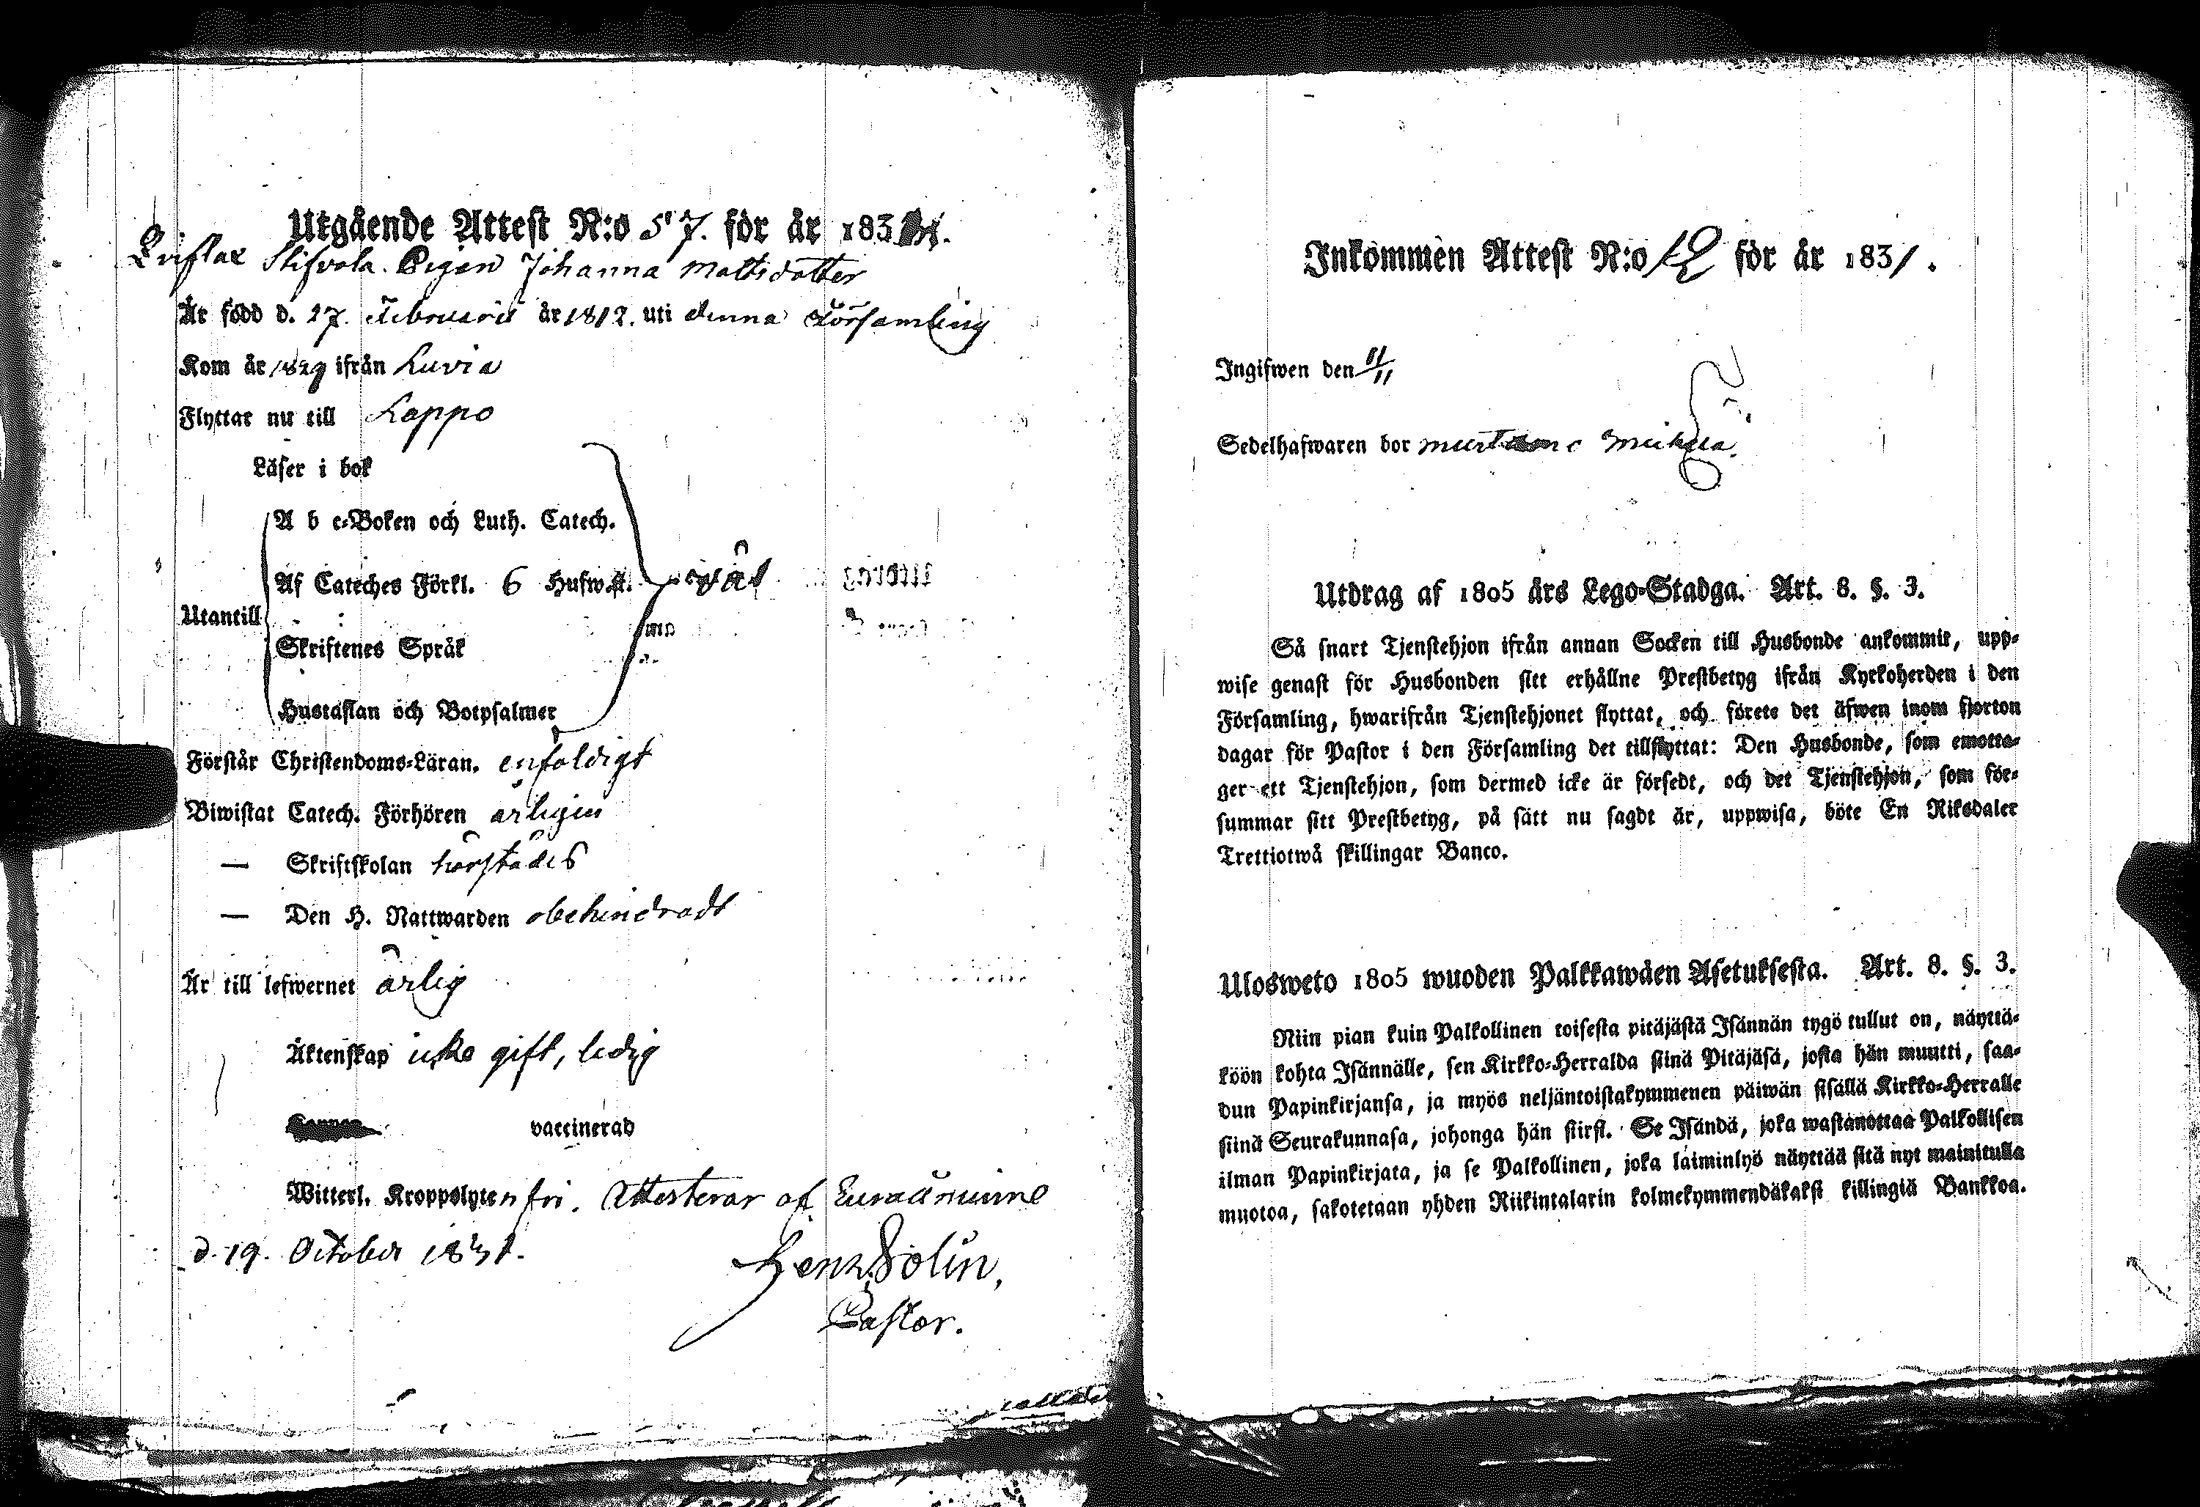 Utgående Attest N:o 57. för år 1831.
Stifvola. Pigan Johanna Mattsdotter
Är född d. 27. Februarii år 1812. uti denna Församling
Kom år 1829 ifrån Luvia
Flyttar nu till Lappo
Läser i bok
A b c-Boken och Luth. Catech.
Af Cateches Förkl. 6 Hufw.st. väl
Utantill
Skriftenes Språk
Hustaflan och Botpsalmer
Förstår Christendoms-Läran. enfaldigt
Biwistat Catech. Förhören årligen
— Skriftskolan härstädes
— Den H. Nattwarden obehindradt
Är till lefwernet ärlig
Äktenskap icke gift, ledig
vaccinerad
Witterl. Kroppslyten fri. Attesterar af Euraåminne
d. 19. October 1831.
Solin,
Pastor.
Inkommen Attest N:o 12 för år 1831.
Ingifwen den 11/11
Sedelhafwaren bor
Utdrag af 1805 års Lego-Stadga. Art. 8. §. 3.
Så snart Tjenstehjon ifrån annan Socken till Husbonde ankommit, upp-
wise genast för Husbonden sitt erhållne Prestbetyg ifrån Kyrkoherden i den
Församling, hwarifrån Tjenstehjonet flyttat, och förete det äfwen inom fjorton
dagar för Pastor i den Församling det tillflyttat: Den Husbonde, som emotta-
ger ett Tjenstehjon, som dermed icke är försedt, och det Tjenstehjon, som för-
summar sitt Prestbetyg, på sätt nu sagdt är, uppwisa, böte En Riksdaler
Trettiotwå skillingar Banco.
Ulosweto 1805 wuoden Palkkawäen Asetuksesta. Art. 8. §. 3.
Niin pian kuin Palkollinen toisesta pitäjästä Isännän tygö tullut on, näyttä-
köön kohta Isännälle, sen Kirkko-Herralda siinä Pitäjäsä, josta hän muutti, saa-
dun Papinkirjansa, ja myös neljäntoistakymmenen päiwän sisällä Kirkko-Herralle
siinä Seurakunnasa, johonga hän siirsi. Se Isändä, joka wastanottaa Palkollisen
ilman Papinkirjata, ja se Palkollinen, joka laiminlyö näyttää sitä nyt mainitulla
muotoa, sakotetaan yhden Riikintalarin kolmekymmendäkaksi killingiä Bankkoa.